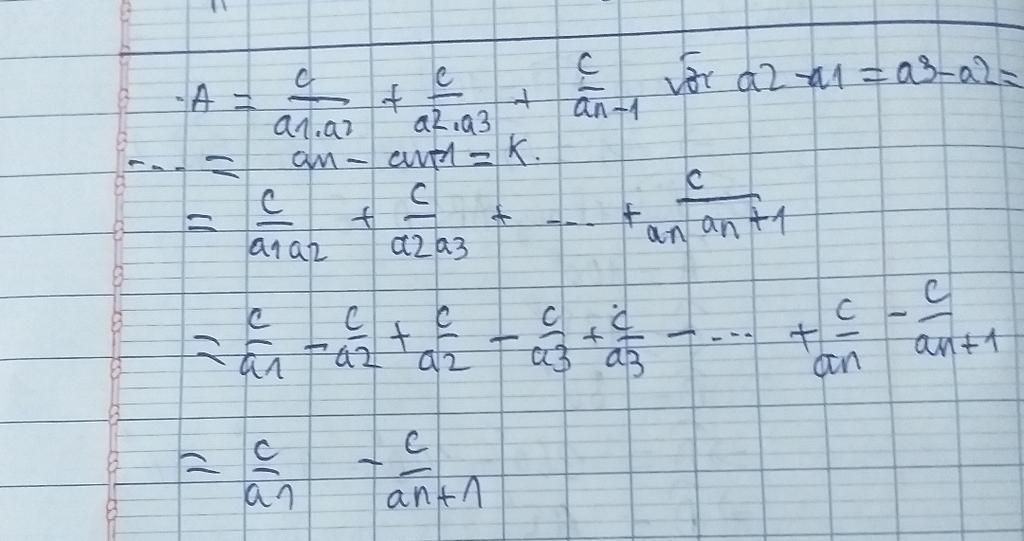 A = c/a1.a2 + c/a2.a3 + c/an-1 với a2 - a1 = a3 - a2 =
... = an - an+1 = K.
= c/a1a2 + c/a2a3 + ... + c/an an+1
= c/a1 - c/a2 + c/a2 - c/a3 + c/a3 - ... + c/an - c/an+1
= c/a1 - c/an+1